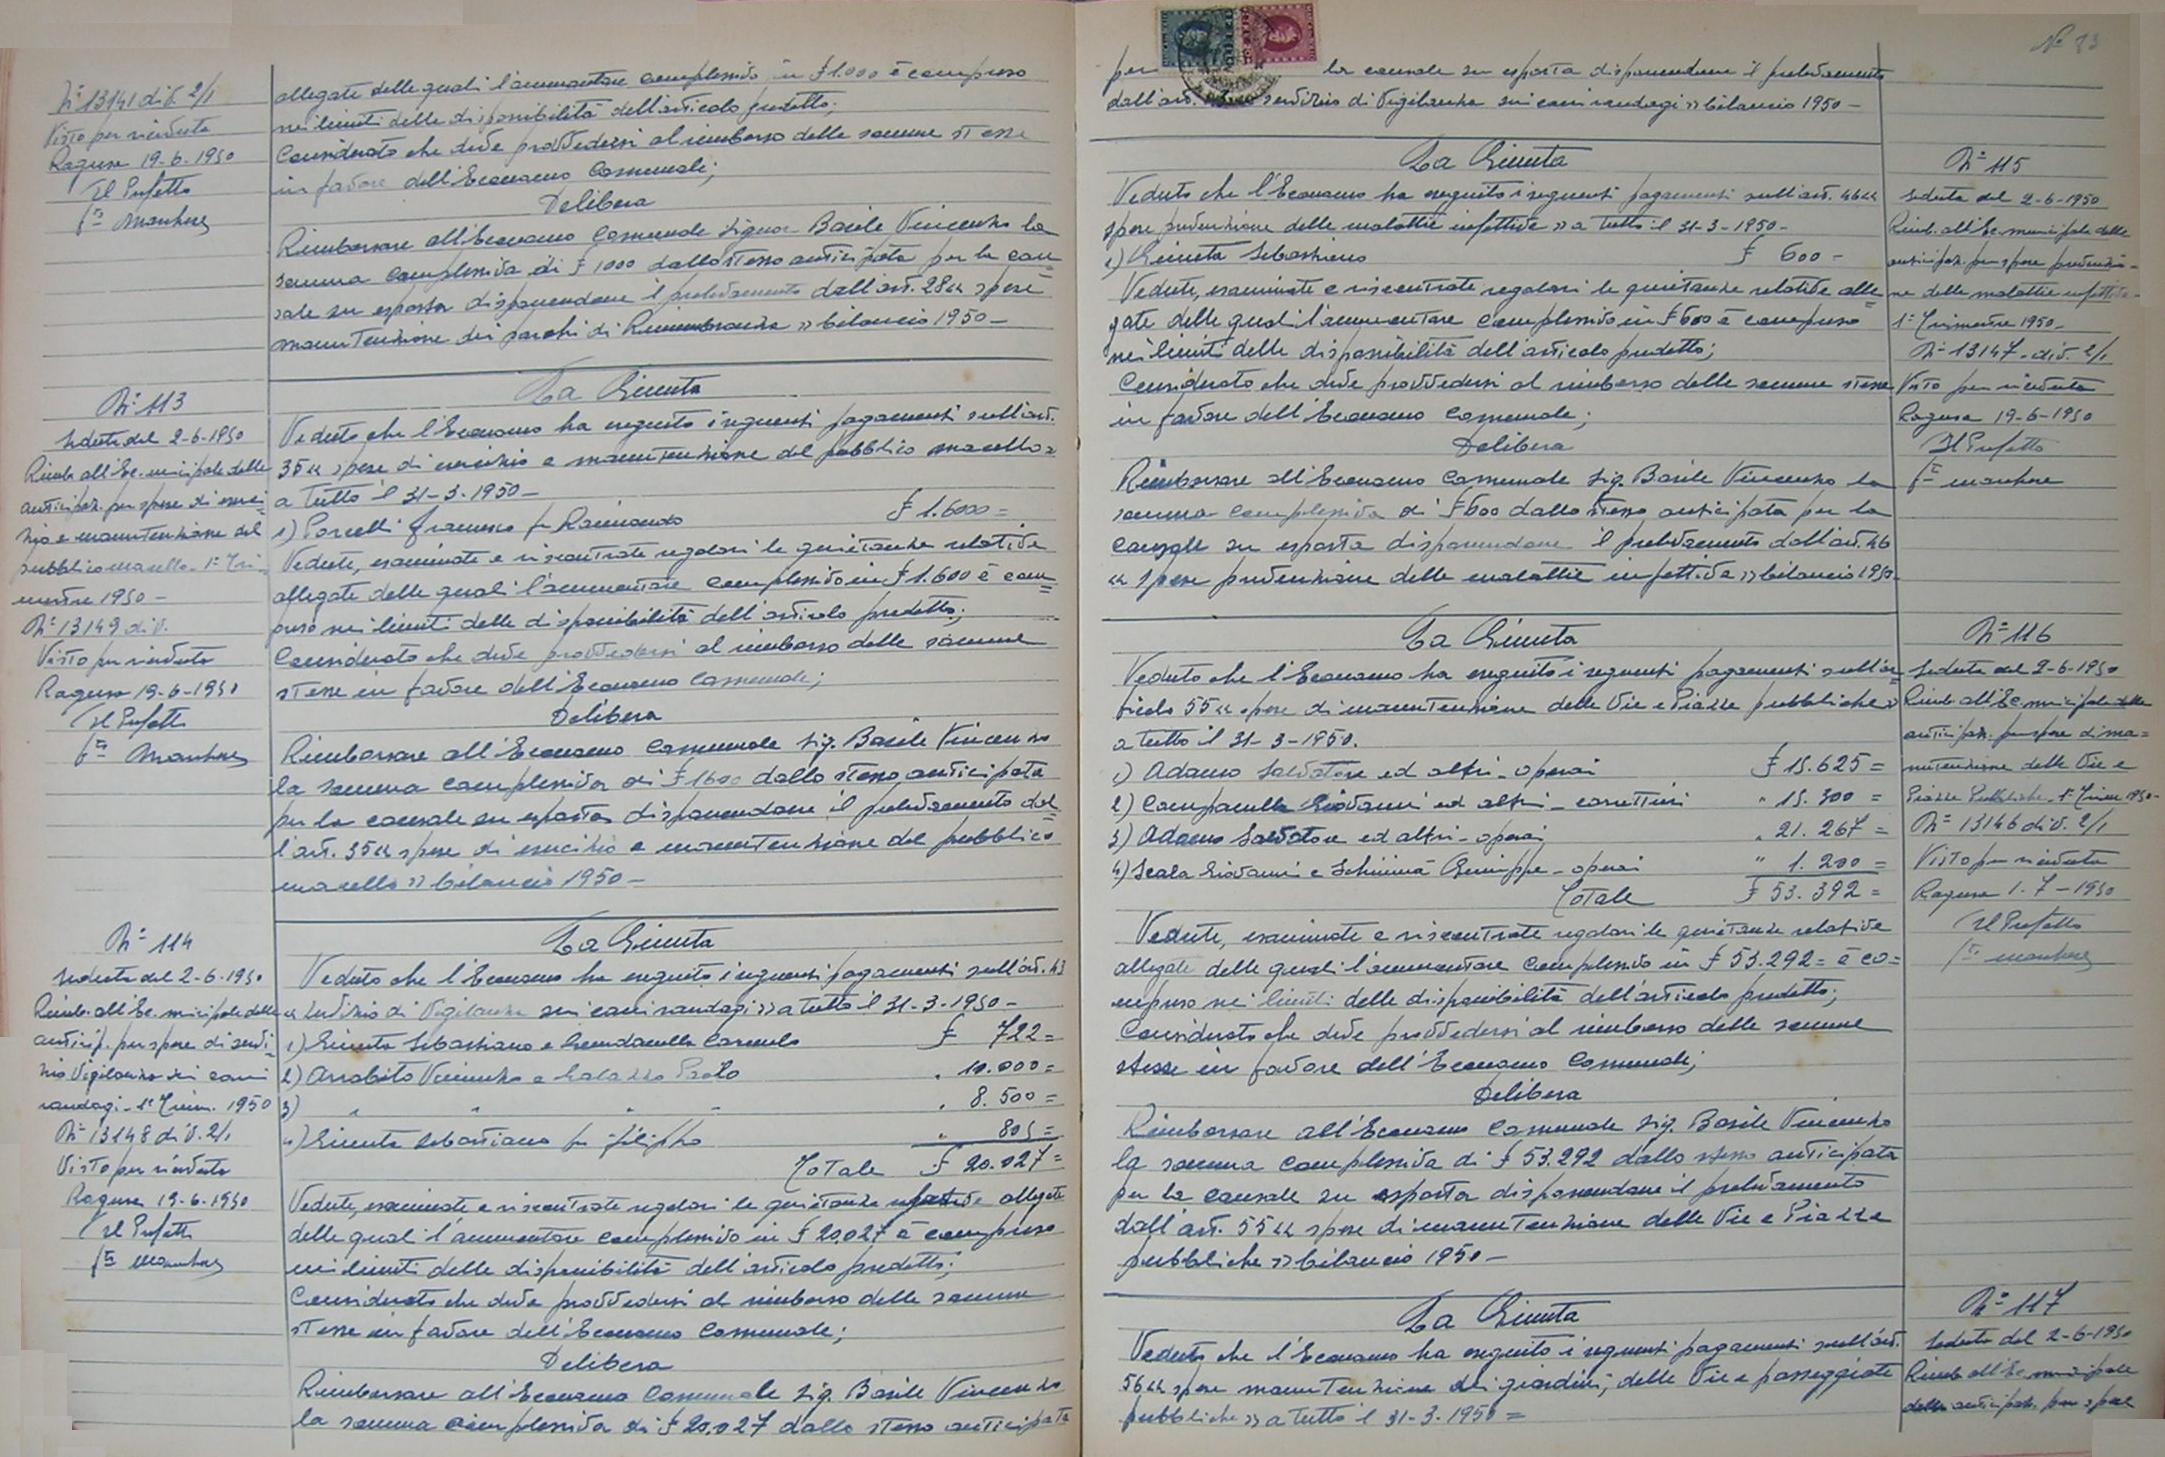 N° 13141 div. 2/1
Visto per ricevuta
Ragusa 19-6-1950
Il Prefetto
allegate delle quali l'ammontare complessivo in £ 1.000 è compreso
nei limiti delle disponibilità dell'articolo predetto;
Considerato che deve provvedersi al rimborso delle somme stesse
in favore dell'Economo Comunale;
Delibera
Rimborsare all'Economo Comunale Signor Basile Vincenzo la
somma complessiva di £ 1000 dallo stesso anticipata per la cau=
sale su esposta disponendone il prelevamento dall'art. 28 « spese
manutenzione dei parchi di Rimembranza » bilancio 1950 –
N° 113
Seduta del 2-6-1950
Rimb. all'Ec. municipale delle
anticipaz. per spese di eserci=
zio e manutenzione del
pubblico macello – 1° Tri=
mestre 1950 –
N° 13149 div.
Visto per ricevuta
Ragusa 19-6-1950
Il Prefetto
La Giunta
Veduto che l'Economo ha eseguito i seguenti pagamenti sull'art.
35 « spese di esercizio e manutenzione del pubblico macello »
a tutto il 31-3-1950 –
1) Porcelli Francesco fu Raimondo £ 1.600 =
Vedute, esaminate e riscontrate regolari le quietanze relative
allegate delle quali l'ammontare complessivo in £ 1.600 è com=
preso nei limiti delle disponibilità dell'articolo predetto;
Considerato che deve provvedersi al rimborso delle somme
stesse in favore dell'Economo Comunale;
Delibera
Rimborsare all'Economo Comunale Sig. Basile Vincenzo
la somma complessiva di £ 1600 dallo stesso anticipata
per la causale su esposta disponendone il prelevamento dal=
l'art. 35 « spese di esercizio e manutenzione del pubblico
macello » bilancio 1950 –
N° 114
Seduta del 2-6-1950
Rimb. all'Ec. municipale delle
anticip. per spese di servi=
zio Vigilanza sui cani
randagi – 1° Trim. 1950
N° 13148 div. 2/1
Visto per ricevuta
Ragusa 19-6-1950
Il Prefetto
La Giunta
Veduto che l'Economo ha eseguito i seguenti pagamenti sull'art. 43
« Servizio di Vigilanza sui cani randagi » a tutto il 31-3-1950 –
1) Giunta Sebastiano e Carmelo £ 722 =
2) Arrabito Vincenzo e Galazzo Paolo " 10.000 =
3) " " " " " 8.500 =
4) Giunta Sebastiano fu Filippo " 805 =
Totale £ 20.027 =
Vedute, esaminate e riscontrate regolari le quietanze relative allegate
delle quali l'ammontare complessivo in £ 20.027 è compreso
nei limiti delle disponibilità dell'articolo predetto;
Considerato che deve provvedersi al rimborso delle somme
stesse in favore dell'Economo Comunale;
Delibera
Rimborsare all'Economo Comunale Sig. Basile Vincenzo
la somma complessiva di £ 20.027 dallo stesso anticipata
per la causale su esposta disponendone il prelevamento
dall'art. servizio di Vigilanza sui cani randagi » bilancio 1950 –
La Giunta
Veduto che l'Economo ha eseguito i seguenti pagamenti sull'art. 46 «
spese prevenzione delle malattie infettive » a tutto il 31-3-1950 –
1) Giunta Sebastiano £ 600 –
Vedute, esaminate e riscontrate regolari le quietanze relative alle=
gate delle quali l'ammontare complessivo in £ 600 è compreso
nei limiti delle disponibilità dell'articolo predetto;
Considerato che deve provvedersi al rimborso delle somme stesse
in favore dell'Economo Comunale;
Delibera
Rimborsare all'Economo Comunale Sig. Basile Vincenzo la
somma complessiva di £ 600 dallo stesso anticipata per la
causale su esposta disponendone il prelevamento dall'art. 46
« spese prevenzione delle malattie infettive » bilancio 1950 –
N° 115
Seduta del 2-6-1950
Rimb. all'Ec. municipale delle
anticipaz. per spese prevenzio=
ne delle malattie infettive –
1° Trimestre 1950 –
N° 13147 – div. 2/1
Visto per ricevuta
Ragusa 19-6-1950
Il Prefetto
La Giunta
Veduto che l'Economo ha eseguito i seguenti pagamenti sull'ar=
ticolo 55 « spese di manutenzione delle Vie e Piazze pubbliche »
a tutto il 31-3-1950.
1) Adamo Salvatore ed altri – operai £ 15.625 =
2) Campanella Giovanni ed altri – carrettieri " 15.300 =
3) Adamo Salvatore ed altri – operai " 21.267 =
4) Scala Giovanni e Schininà Giuseppe – operai " 1.200 =
Totale £ 53.392 =
Vedute, esaminate e riscontrate regolari le quietanze relative
allegate delle quali l'ammontare complessivo in £ 53.292 = è co=
mpreso nei limiti delle disponibilità dell'articolo predetto;
Considerato che deve provvedersi al rimborso delle somme
stesse in favore dell'Economo Comunale;
Delibera
Rimborsare all'Economo Comunale Sig. Basile Vincenzo
la somma complessiva di £ 53.292 dallo stesso anticipata
per la causale su esposta disponendone il prelevamento
dall'art. 55 « spese di manutenzione delle Vie e Piazze
pubbliche » bilancio 1950 –
N° 116
Seduta del 2-6-1950
Rimb. all'Ec. municipale delle
anticipaz. per spese di ma=
nutenzione delle Vie e
Piazze Pubbliche – 1° Trim. 1950 –
N° 13146 div. 2/1
Visto per ricevuta
Ragusa 1-7-1950
Il Prefetto
La Giunta
Veduto che l'Economo ha eseguito i seguenti pagamenti sull'art.
56 « spese manutenzione dei giardini, delle Vie e passeggiate
pubbliche » a tutto il 31-3-1950 =
N° 117
Seduta del 2-6-1950
Rimb. all'Ec. municipale
delle anticipaz. per spese